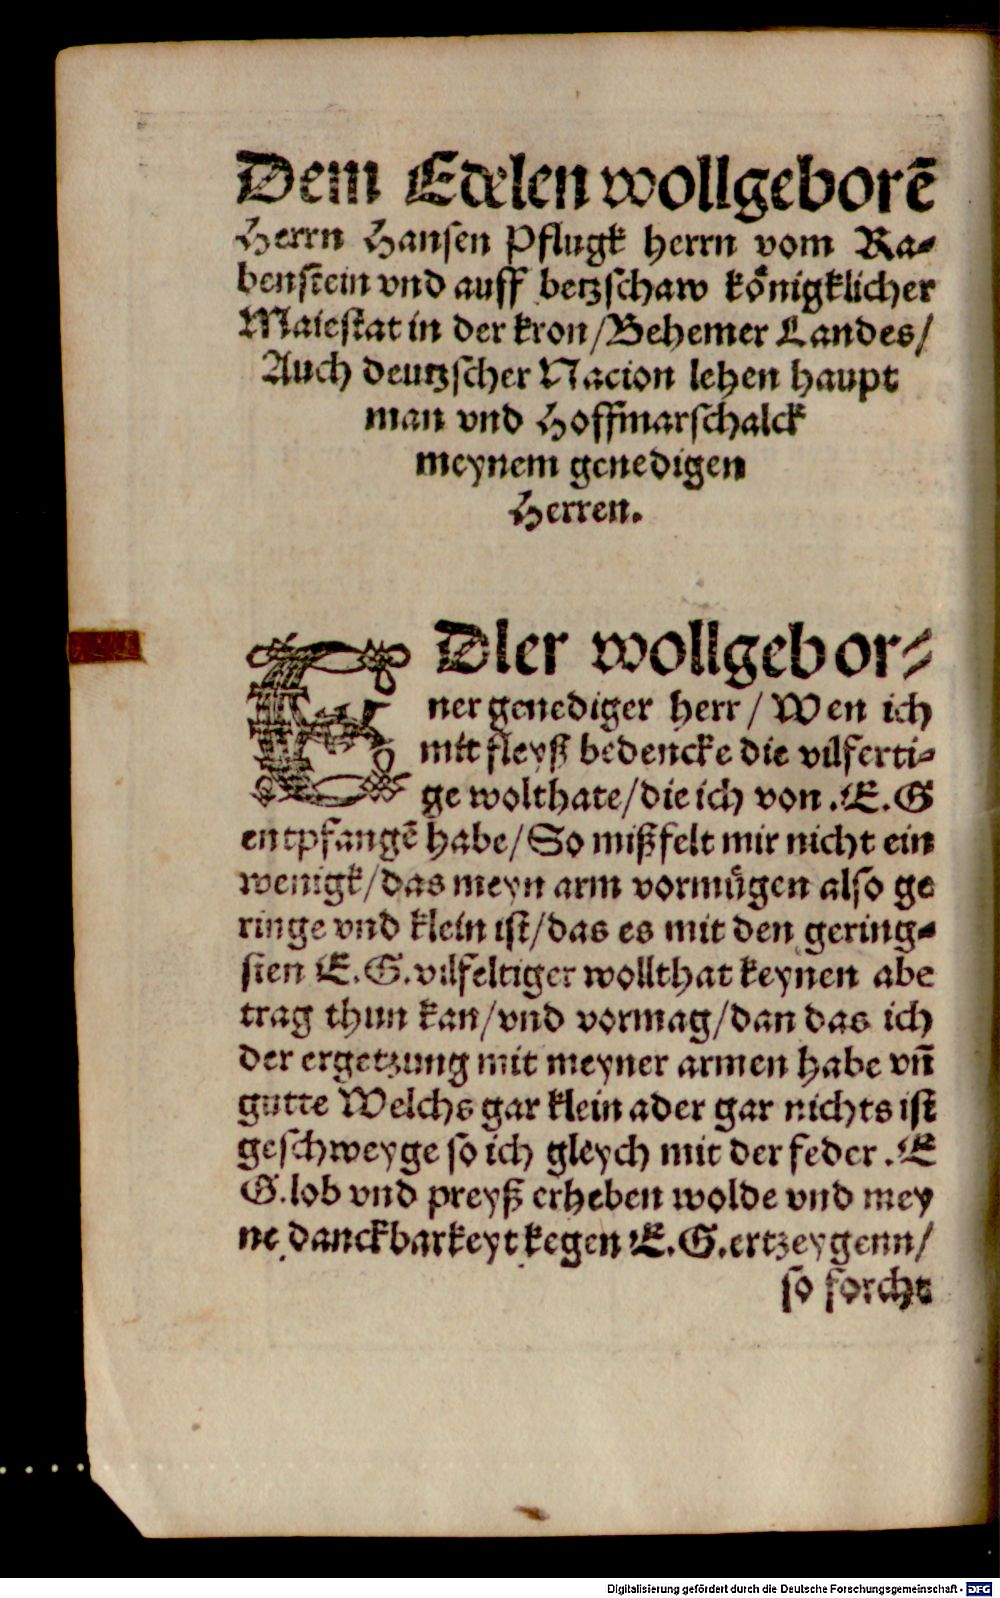 Dem Edelen wollgeborē
Herrn Hansen Pflugk herrn vom Ra⸗
benstein vnd auff betzschaw koͤnigklicher
Maiestat in der kron/Behemer Landes/
Auch deutzscher Nacion lehen haupt
man vnd Hoffmarschalck
meynem genedigen
Herren.
EDler wollgebor⸗
ner genediger herr/ Wen ich
mit fleyß bedencke die vilferti⸗
ge wolthate/die ich von .E.G
entpfangē habe/So mißfelt mir nicht ein
wenigk/das meyn arm vormuͤgen also ge
ringe vnd klein ist/das es mit den gering⸗
sten E.G.vilfeltiger wollthat keynen abe
trag thun kan/vnd vormag/dan das ich
der ergetzung mit meyner armen habe vn̄
gutte Welchs gar klein ader gar nichts ist
geschweyge so ich gleych mit der feder .E
G.lob vnd preyß erheben wolde vnd mey
ne danckbarkeyt kegen E.G.ertzeygenn/
so forcht
Digitalisierung gefördert durch die Deutsche Forschungsgemeinschaft - DFG